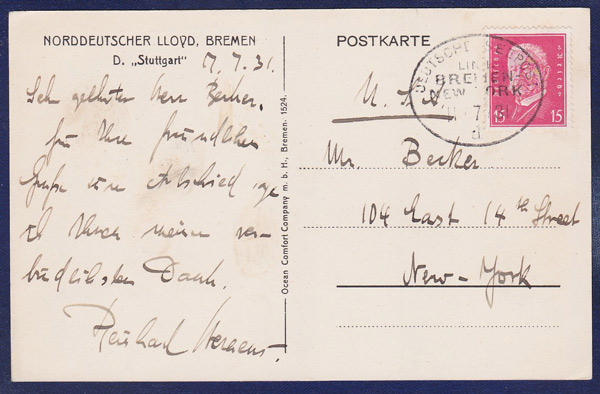 NORDDEUTSCHER LLOYD, BREMEN
D. „Stuttgart"
17.7.31.
Sehr geehrter Herr Becker,
für Ihre freundlichen
Grüße zum Abschied sage
ich Ihnen meinen ver-
bindlichsten Dank.
Reinhard Heraeus.
Ocean Comfort Company m. b. H., Bremen. 1524.
POSTKARTE
DEUTSCHE SEEPOST
LINIE
BREMEN-
NEW YORK
7.31
d
15
15
U.S.A.
Mr. Becker
104 East 14th Street
New-York